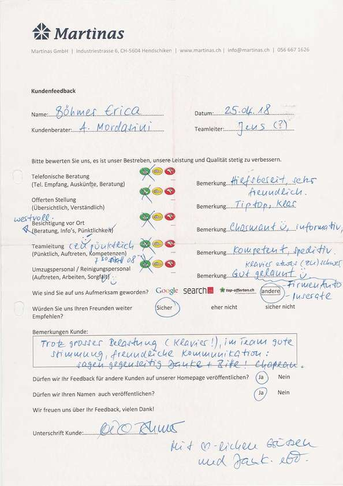 Martinas
Martinas GmbH | Industriestrasse 6, CH-5604 Hendschiken | www.martinas.ch | info@martinas.ch | 056 667 1626
Kundenfeedback
Name: Böhmer Erica Datum: 25.04.18
Kundenberater: A. Mordasini Teamleiter: Jens (?)
Bitte bewerten Sie uns, es ist unser Bestreben, unsere Leistung und Qualität stetig zu verbessern.
Telefonische Beratung
(Tel. Empfang, Auskünfte, Beratung) Bemerkung Hilfsbereit, sehr freundlich.
Offerten Stellung
(Übersichtlich, Verständlich) Bemerkung Tiptop, klar
wertvoll
Besichtigung vor Ort
(Beratung, Info's, Pünktlichkeit) Bemerkung Charmant, informativ,
Teamleitung überpünktlich
(Pünktlich, Auftreten, Kompetenzen) Bemerkung Kompetent, speditiv
Umzugspersonal / Reinigungspersonal Klavier
(Auftreten, Arbeiten, Sorgfalt) Bemerkung Gut gelaunt
Wie sind Sie auf uns Aufmerksam geworden? Google search top-offerten.ch andere Firmenauto
Inserate
Würden Sie uns Ihren Freunden weiter Sicher eher nicht sicher nicht
Empfehlen?
Bemerkungen Kunde:
Trotz grosser Belastung (Klavier!), im Team gute
Stimmung, freundliche Kommunikation:
sagen gegenseitig Danke + Bitte! Chapeau.
Dürfen wir Ihr Feedback für andere Kunden auf unserer Homepage veröffentlichen? Ja Nein
Dürfen wir Ihren Namen auch veröffentlichen? Ja Nein
Wir freuen uns über Ihr Feedback, vielen Dank!
Unterschrift Kunde:
Mit ♡-lichen Grüssen
und Dank.